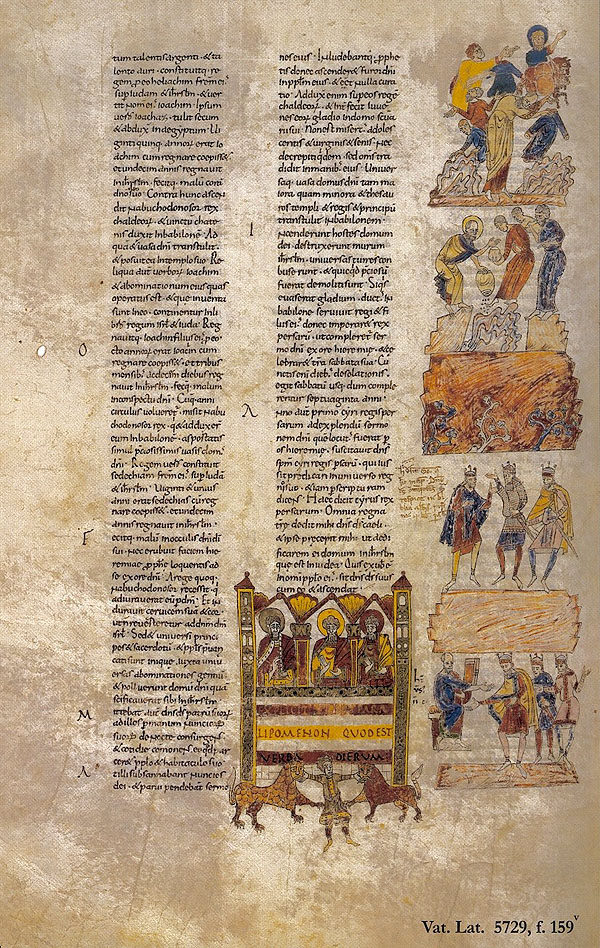 tum talentis argenti · & ta
lento auri · constituitq: re
gem, p eo heliachim fratrem ei'
sup iudam & ihrlm · & uer
tit nomen ei' ioachim · Ipsum
uero ioachaz · tulit secum
& abdux in aegyptum · Ui
ginti quinq: annorum erat io
achim cum regnare coepiss&
& undecim annis regnauit
in ihrlm · fecitq: malu corā
dno suo · Contra hunc ascen
dit nabuchodonosor rex
chaldeorum · & uinctu cathe
nis duxit in babilonē · Ad
quā & uasa dni transtulit ·
& posuit ea in templo suo · Re
liqua aut uerborum ioachim
& abominationum eius quas
operatus est · & que inuenta
sunt in eo · continentur in li
bro regum isrl & iuda · Reg
nauitq: ioachin filius ei' p eo ·
octo annorum erat ioacin cum
regnare coepiss& · & tribus
mensib; ac decem diebus reg
nauit in ihrlm · fecitq: malum
in conspectu dni · Cumq: anni
circulus uoluer& · misit nabu
chodonosor rex · qui & adduxer
eum in babilonē · asportatis
simul p&iosissimis uasis dom'
dni · Regem uero constituit
sedechiam fratrem ei' sup iudā
& ihrlm · Uiginti & unius
anni erat sedechias cū reg
nare coepiss& · & undecim
annis regnauit in ihrlm ·
fecitq: malū in oculis dni di
sui · nec erubuit faciem hie
remiae pph&e loquentis ad
se ex ore dni · A rege quoq;
nabuchodonosor recessit · q
adiurauerat eū p dm · Et in
durauit ceruicem suā & cor ·
ut non reuerteretur ad dnm dm
isrl · Sed & uniuersi princi
pes & sacerdotū · & ppls pua
ricati sunt inique · iuxta uniu
ersas abominationes gentiū
& polluerunt domū dni quā
scificauerat sibi in ihrlm ·
mittebat aut dns ds patrū suorum
ad illos p manum nuncior
suorum de nocte consurgens
& cotidie comonens · eo qd par
cer& pplo & habitaculo suo
At illi subsannabant nuncios
dei · & parui pendebat sermo
nes eius · Inludebantq: pph&
tis donec ascender& furor dni
in pplm eius · & ess& nulla cura
tio · Adduxit enim sup eos regē
chaldeorum · & int fecit iuue
nes eorum gladio in domo scua
rii sui · Non est misert' adoles
centis & uirginis & senis · nec
decrepiti qdem · sed oms tra
didit in manib; ei' · Uniuer
saq: uasa domus dni tam ma
iora quam minora · & thesau
ros templi & regis & principū
transtulit in babilonem ·
Incenderunt hostes domum
dei · destruxerunt murum
ihrlm · uniuersas turres con
busserunt · & quicqd p&iosū
fuerat demoliti sunt · Siqs
euaserat gladium · duct' in
babilone seruiuit regi & fi
liis ei' · donec imperar& rex
persarū · ut compleretur ser
mo dni ex ore hieremie · & ce
lebrar& tra sabbata sua · Cū
ctis eni dieb; desolationis ·
egit sabbatū usq: dum comple
rentur septuaginta anni ·
Anno aut primo cyri regis per
sarum · ad explendū sermo
nem dni que locut' fuerat p
os hieremie · suscitauit dns
spm cyri regis psarū · qui ius
sit p dicari in uniuerso reg
no suo · & iam p scripturam
dicens · Haec dicit cyrus rex
persarum · Omnia regna
tre dedit mihi dns ds caeli ·
& ipse precepit mihi ut aedi
ficarem ei domum in ihrlm
que est in iudea · Quis ex uob;
in omi pplo ei' · sit dns ds suus
cum eo & ascendat
LIPOMENON QUOD EST
VERBA DIERUM
Vat. Lat. 5729, f. 159v